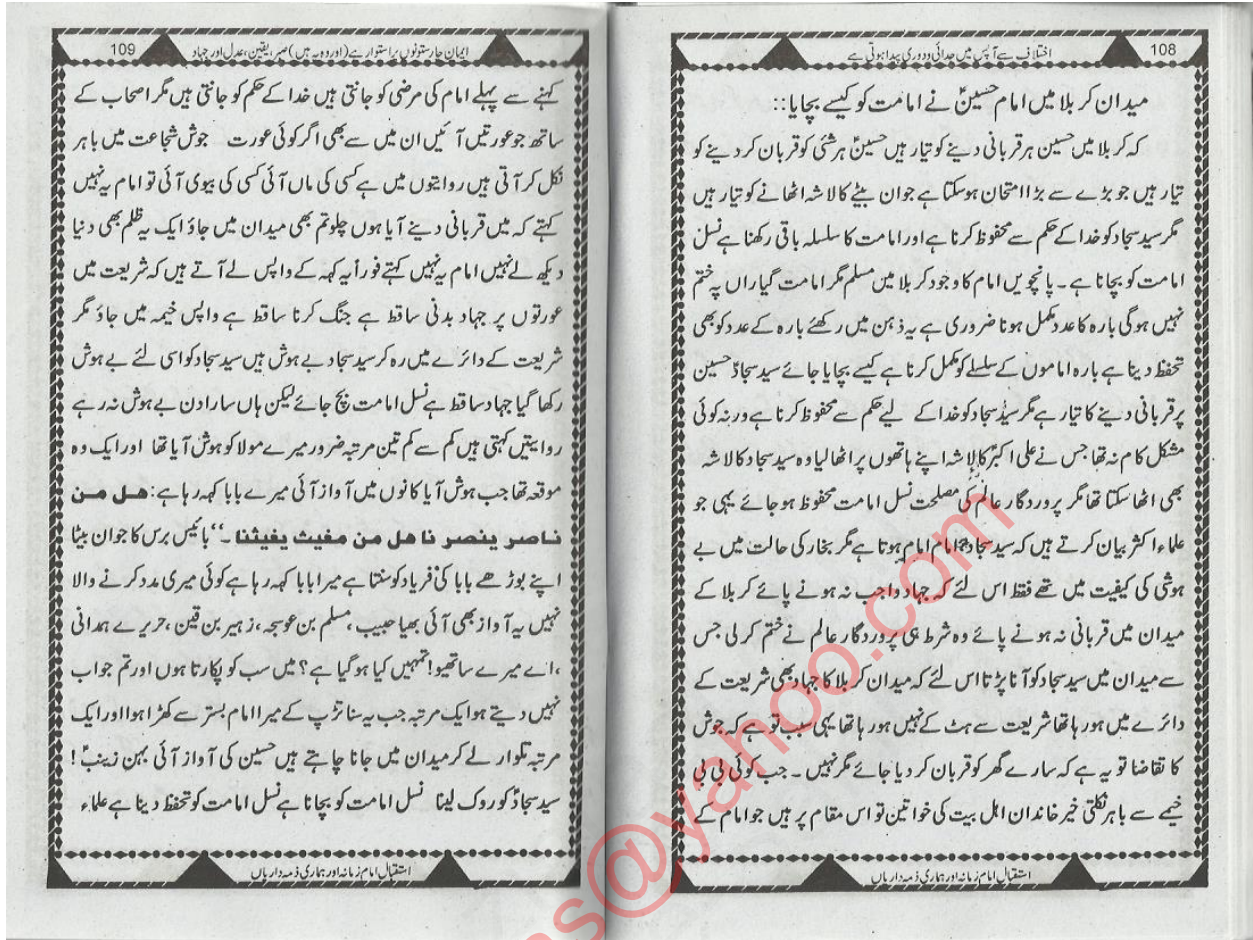 108
اختلاف سے آپس میں جدائی و دوری پیدا ہوتی ہے
میدان کربلا میں امام حسینؑ نے امامت کو کیسے بچایا::
کہ کربلا میں حسین ہر قربانی دینے کو تیار ہیں حسینؑ ہر شئی کو قربان کر دینے کو
تیار ہیں جو بڑے سے بڑا امتحان ہو سکتا ہے جوان بیٹے کا لاشہ اٹھانے کو تیار ہیں
مگر سید سجاد کو خدا کے حکم سے محفوظ کرنا ہے اور امامت کا سلسلہ باقی رکھنا ہے نسل
امامت کو بچانا ہے۔ پانچویں امام کا وجود کربلا میں مسلم مگر امامت گیاراں پہ ختم
نہیں ہوگی بارہ کا عدد مکمل ہونا ضروری ہے یہ ذہن میں رکھئے بارہ کے عدد کو بھی
تحفظ دینا ہے بارہ اماموں کے سلسلے کو مکمل کرنا ہے کیسے بچایا جائے سید سجادؑ حسین
پر قربانی دینے کا تیار ہے مگر سید سجاد کو خدا کے لیے حکم سے محفوظ کرنا ہے ورنہ کوئی
مشکل کام نہ تھا جس نے علی اکبرؑ کا لاشہ اپنے ہاتھوں پر اٹھالیا وہ سید سجاد کا لاشہ
بھی اٹھا سکتا تھا مگر پروردگار عالم کی مصلحت نسل امامت محفوظ ہو جائے یہی جو
علماء اکثر بیان کرتے ہیں کہ سید سجاد امام ہوتا ہے مگر بخار کی حالت میں بے
ہوشی کی کیفیت میں تھے فقط اس لئے کہ جہاد واجب نہ ہونے پائے کربلا کے
میدان میں قربانی نہ ہونے پائے وہ شرط ہی پروردگار عالم نے ختم کر لی جس
سے میدان میں سید سجاد کو آنا پڑتا اس لئے کہ میدان کربلا کا جہاد بھی شریعت کے
دائرے میں ہو رہا تھا شریعت سے ہٹ کے نہیں ہو رہا تھا یہی سبب تو ہے کہ جوش
کا تقاضا تو یہ ہے کہ سارے گھر کو قربان کر دیا جائے مگر نہیں۔ جب کوئی بی بی
خیمے سے باہر نکلتی خیر خاندان اہل بیت کی خواتین تو اس مقام پر ہیں جو امام کے
استقبال امام زمانہ اور ہماری ذمہ داریاں
109
ایمان چار ستونوں پر استوار ہے (اور وہ یہ ہیں) صبر، یقین، عدل اور جہاد
کہنے سے پہلے امام کی مرضی کو جانتی ہیں خدا کے حکم کو جانتی ہیں مگر اصحاب کے
ساتھ جو عورتیں آئیں ان میں سے بھی اگر کوئی عورت جوش شجاعت میں باہر
نکل کر آتی ہیں روایتوں میں ہے کسی کی ماں آئی کسی کی بیوی آئی تو امام یہ نہیں
کہتے کہ میں قربانی دینے آیا ہوں چلو تم بھی میدان میں جاؤ ایک یہ ظلم بھی دنیا
دیکھ لے نہیں امام یہ نہیں کہتے فوراً یہ کہہ کے واپس لے آتے ہیں کہ شریعت میں
عورتوں پر جہاد بدنی ساقط ہے جنگ کرنا ساقط ہے واپس خیمہ میں جاؤ مگر
شریعت کے دائرے میں رہ کر سید سجاد بے ہوش ہیں سید سجاد کو اسی لئے بے ہوش
رکھا گیا جہاد ساقط ہے نسل امامت بچ جائے لیکن ہاں سارا دن بے ہوش نہ رہے
روایتیں کہتی ہیں کم سے کم تین مرتبہ ضرور میرے مولا کو ہوش آیا تھا اور ایک وہ
موقعہ تھا جب ہوش آیا کانوں میں آواز آئی میرے بابا کہہ رہا ہے: ھل من
ناصر ینصر نا ھل من مغیث یغیثنا۔‘‘ بائیس برس کا جوان بیٹا
اپنے بوڑھے بابا کی فریاد کو سنتا ہے میرا بابا کہہ رہا ہے کوئی میری مدد کرنے والا
نہیں یہ آواز بھی آئی بھیا حبیب، مسلم بن عوسجہ، زہیر بن قین، حریرے ہمدانی
،اے میرے ساتھیو! تمہیں کیا ہو گیا ہے؟ میں سب کو پکارتا ہوں اور تم جواب
نہیں دیتے ہو ایک مرتبہ جب یہ سنا تڑپ کے میرا امام بستر سے کھڑا ہوا اور ایک
مرتبہ تلوار لے کر میدان میں جانا چاہتے ہیں حسین کی آواز آئی بہن زینبؑ!
سید سجادؑ کو روک لینا نسل امامت کو بچانا ہے نسل امامت کو تحفظ دینا ہے علماء
استقبال امام زمانہ اور ہماری ذمہ داریاں
s@yahoo.com